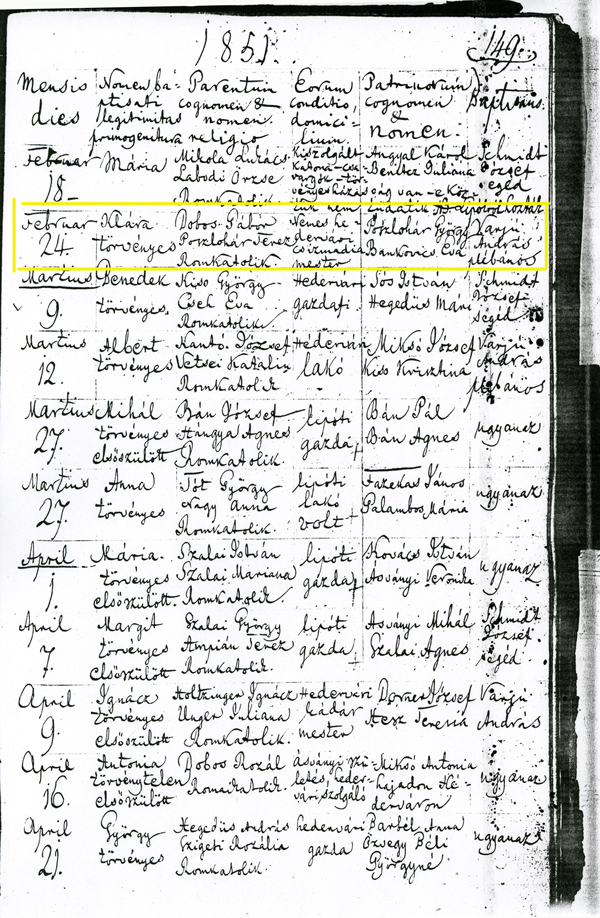 1851.
149.
Mensis dies
Nomen baptisati legitimitas primogenitura
Parentum cognomen & nomen. religio
Eorum conditio, domicilium.
Patrinorum cognomen & nomen.
Februar 18
Mária
Mikola Lukács Labodi Örzse Romkatolik
Angyal Károl Benitz Juliana
Schmidt József segéd
Februar 24.
Klára törvényes
Dobos Gábor Poszlohár Teréz Romkatolik
Nemes hedervári csizmadia mester
Poszlohár György Bankovics Eva
Varjú András plébános
Martius 9.
Benedek törvényes,
Kiss György Cseh Eva Romkatolik.
Hedervári gazdafi.
Sós István Hegedüs Mári
Schmidt József segéd
Martius 12.
Albert törvényes
Kantó József Vetsei Katalin Romkatolik
Hedervári lakó
Miksó József Kiss Krisztina
Varjú András plébános
Martius 27.
Mihál törvényes elsőszülött
Bán József Hangya Agnes Romkatolik.
lipóti gazda
Bán Pál Bán Agnes
ugyanaz
Martius 27.
Anna törvényes
Tót György Nagy Anna Romkatolik.
lipóti lakó volt
Fazekas János Palambos Mária
ugyanaz
April 1.
Mária. törvényes elsőszülött.
Szalai István Szalai Mariana Romkatolik.
lipóti gazda
Kovács István Asványi Veronika
ugyanaz
April 7.
Margit törvényes elsőszülött
Szalai György Ampián Teréz Romkatolik.
lipóti gazda
Asványi Mihál Szalai Agnes
Schmidt József. segéd.
April 9.
Ignácz törvényes elsőszülött
Holtzinger Ignácz Unger Juliana Romkatolik.
Hedervári kádár mester
József Hesz Teresia
Varjú András
April 16.
Antonia törvénytelen elsőszülött
Dobos Rozál Romaikatolik.
ásványi születés, hedervári, szolgáló
Miksó Antonia hajadon Héderváron
ugyanaz
April 21.
György törvényes
Hegedüs András Szigeti Rozália Romkatolik.
hedervári gazda
Barbél Anna Özvegy Béli Györgyné
ugyanaz